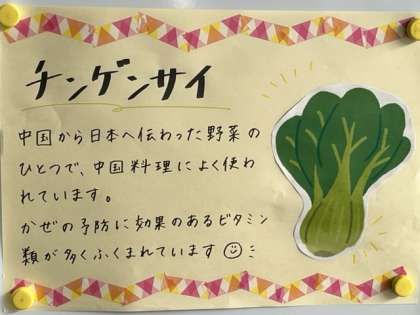 チンゲンサイ
中国から日本へ伝わった野菜の
ひとつで、中国料理によく使わ
れています。
かぜの予防に効果のあるビタミン
類が多くふくまれています